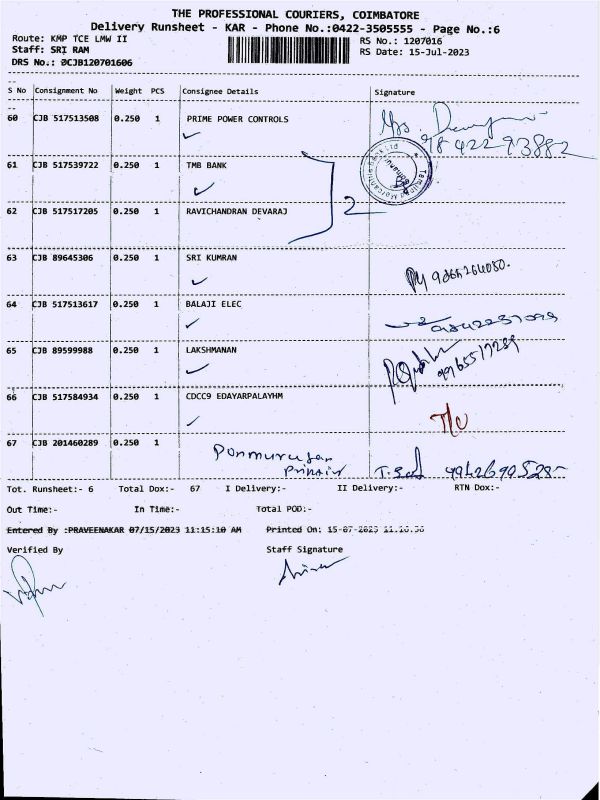 THE PROFESSIONAL COURIERS, COIMBATORE
Delivery Runsheet - KAR - Phone No.:0422-3505555 - Page No.:6
Route: KMP TCE LMW II RS No.: 1207016
Staff: SRI RAM RS Date: 15-Jul-2023
DRS No.: 0CJB120701606
S No Consignment No Weight PCS Consignee Details Signature
60 CJB 517513508 0.250 1 PRIME POWER CONTROLS
98422 93882
61 CJB 517539722 0.250 1 TMB BANK
2
62 CJB 517517205 0.250 1 RAVICHANDRAN DEVARAJ
63 CJB 89645306 0.250 1 SRI KUMRAN
64 CJB 517513617 0.250 1 BALAJI ELEC
65 CJB 89599988 0.250 1 LAKSHMANAN
9965517289
66 CJB 517584934 0.250 1 CDCC9 EDAYARPALAYHM
67 CJB 201460289 0.250 1
Tot. Runsheet:- 6 Total Dox:- 67 I Delivery:- II Delivery:- RTN Dox:-
Out Time:- In Time:- Total POD:-
Entered By :PRAVEENAKAR 07/15/2023 11:15:10 AM Printed On: 15-07-2023
Verified By Staff Signature